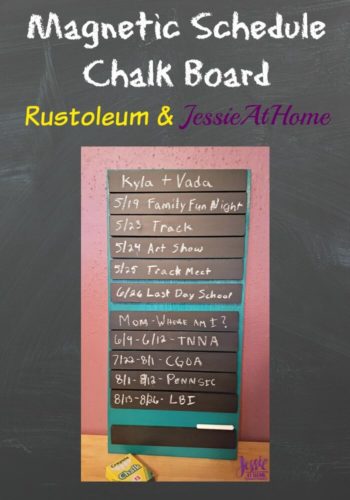 Magnetic Schedule
Chalk Board
Rustoleum & JessieAtHome
Kyla + Vada
5/19 Family Fun Night
5/23 Track
5/24 Art Show
5/25 Track Meet
6/26 Last Day School
Mom-Where am I?
6/9-6/12-TNNA
7/22-8/1-CGOA
8/1-8/12-Pennsic
8/13-8/26-LBI
Chalk
Jessie
AT HOME